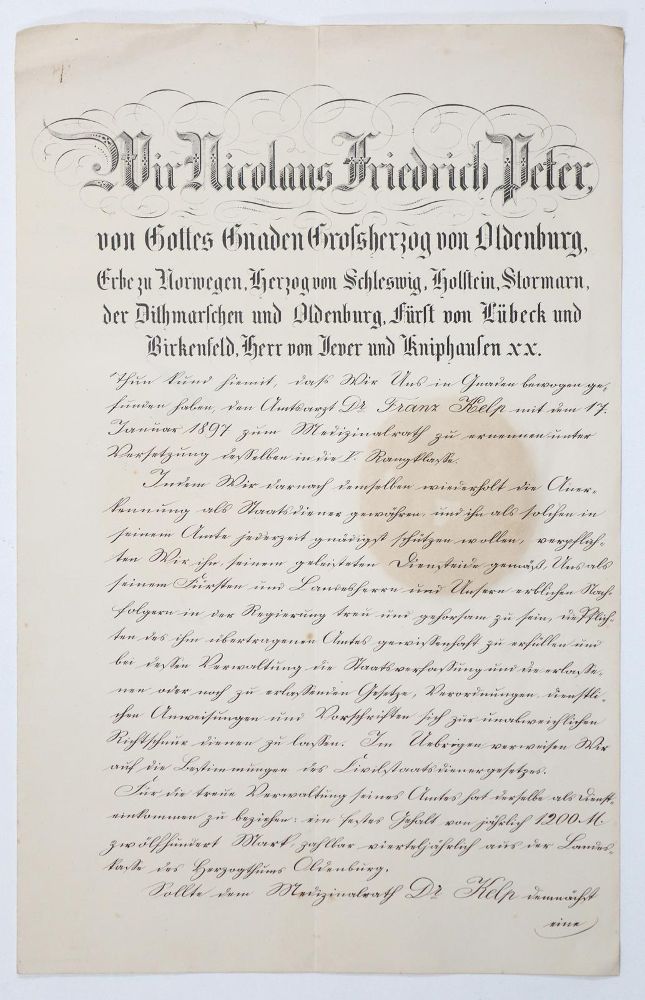 Wir Nicolaus Friedrich Peter,
von Gottes Gnaden Grossherzog von Oldenburg,
Erbe zu Norwegen, Herzog von Schleswig, Holstein, Stormarn,
der Dithmarschen und Oldenburg, Fürst von Lübeck und
Birkenfeld, Herr von Jever und Kniphausen xx.
Thun kund hiemit, daß Wir Uns in Gnaden bewogen ge-
funden haben, den Amtsarzt Dr Franz Kelp mit dem 17.
Januar 1897 zum Medizinalrath zu ernennen unter
Versetzung desselben in die V. Rangklasse.
Indem Wir darnach demselben wiederholt die Aner-
kennung als Staatsdiener gewähren, und ihn als solchen in
seinem Amte jederzeit gnädigst schützen wollen, verpflich-
ten Wir ihn, seinem geleisteten Diensteide gemäß, Uns als
seinem Fürsten und Landesherrn und Unsern erblichen Nach-
folgern in der Regierung treu und gehorsam zu sein, die Pflich-
ten des ihm übertragenen Amtes gewissenhaft zu erfüllen und
bei dessen Verwaltung die Staatsverfassung und die erlasse-
nen oder noch zu erlassenden Gesetze, Verordnungen, dienstli-
chen Anweisungen und Vorschriften sich zur unabweichlichen
Richtschnur dienen zu lassen. Im Uebrigen verweisen Wir
auf die Bestimmungen des Civilstaatsdienergesetzes.
Für die treue Verwaltung seines Amtes hat derselbe als Dienst-
einkommen zu beziehen: ein festes Gehalt von jährlich 1200 M.
zwölfhundert Mark, zahlbar vierteljährlich aus der Landes-
kasse des Herzogthums Oldenburg.
Sollte dem Medizinalrath Dr Kelp demnächst
eine